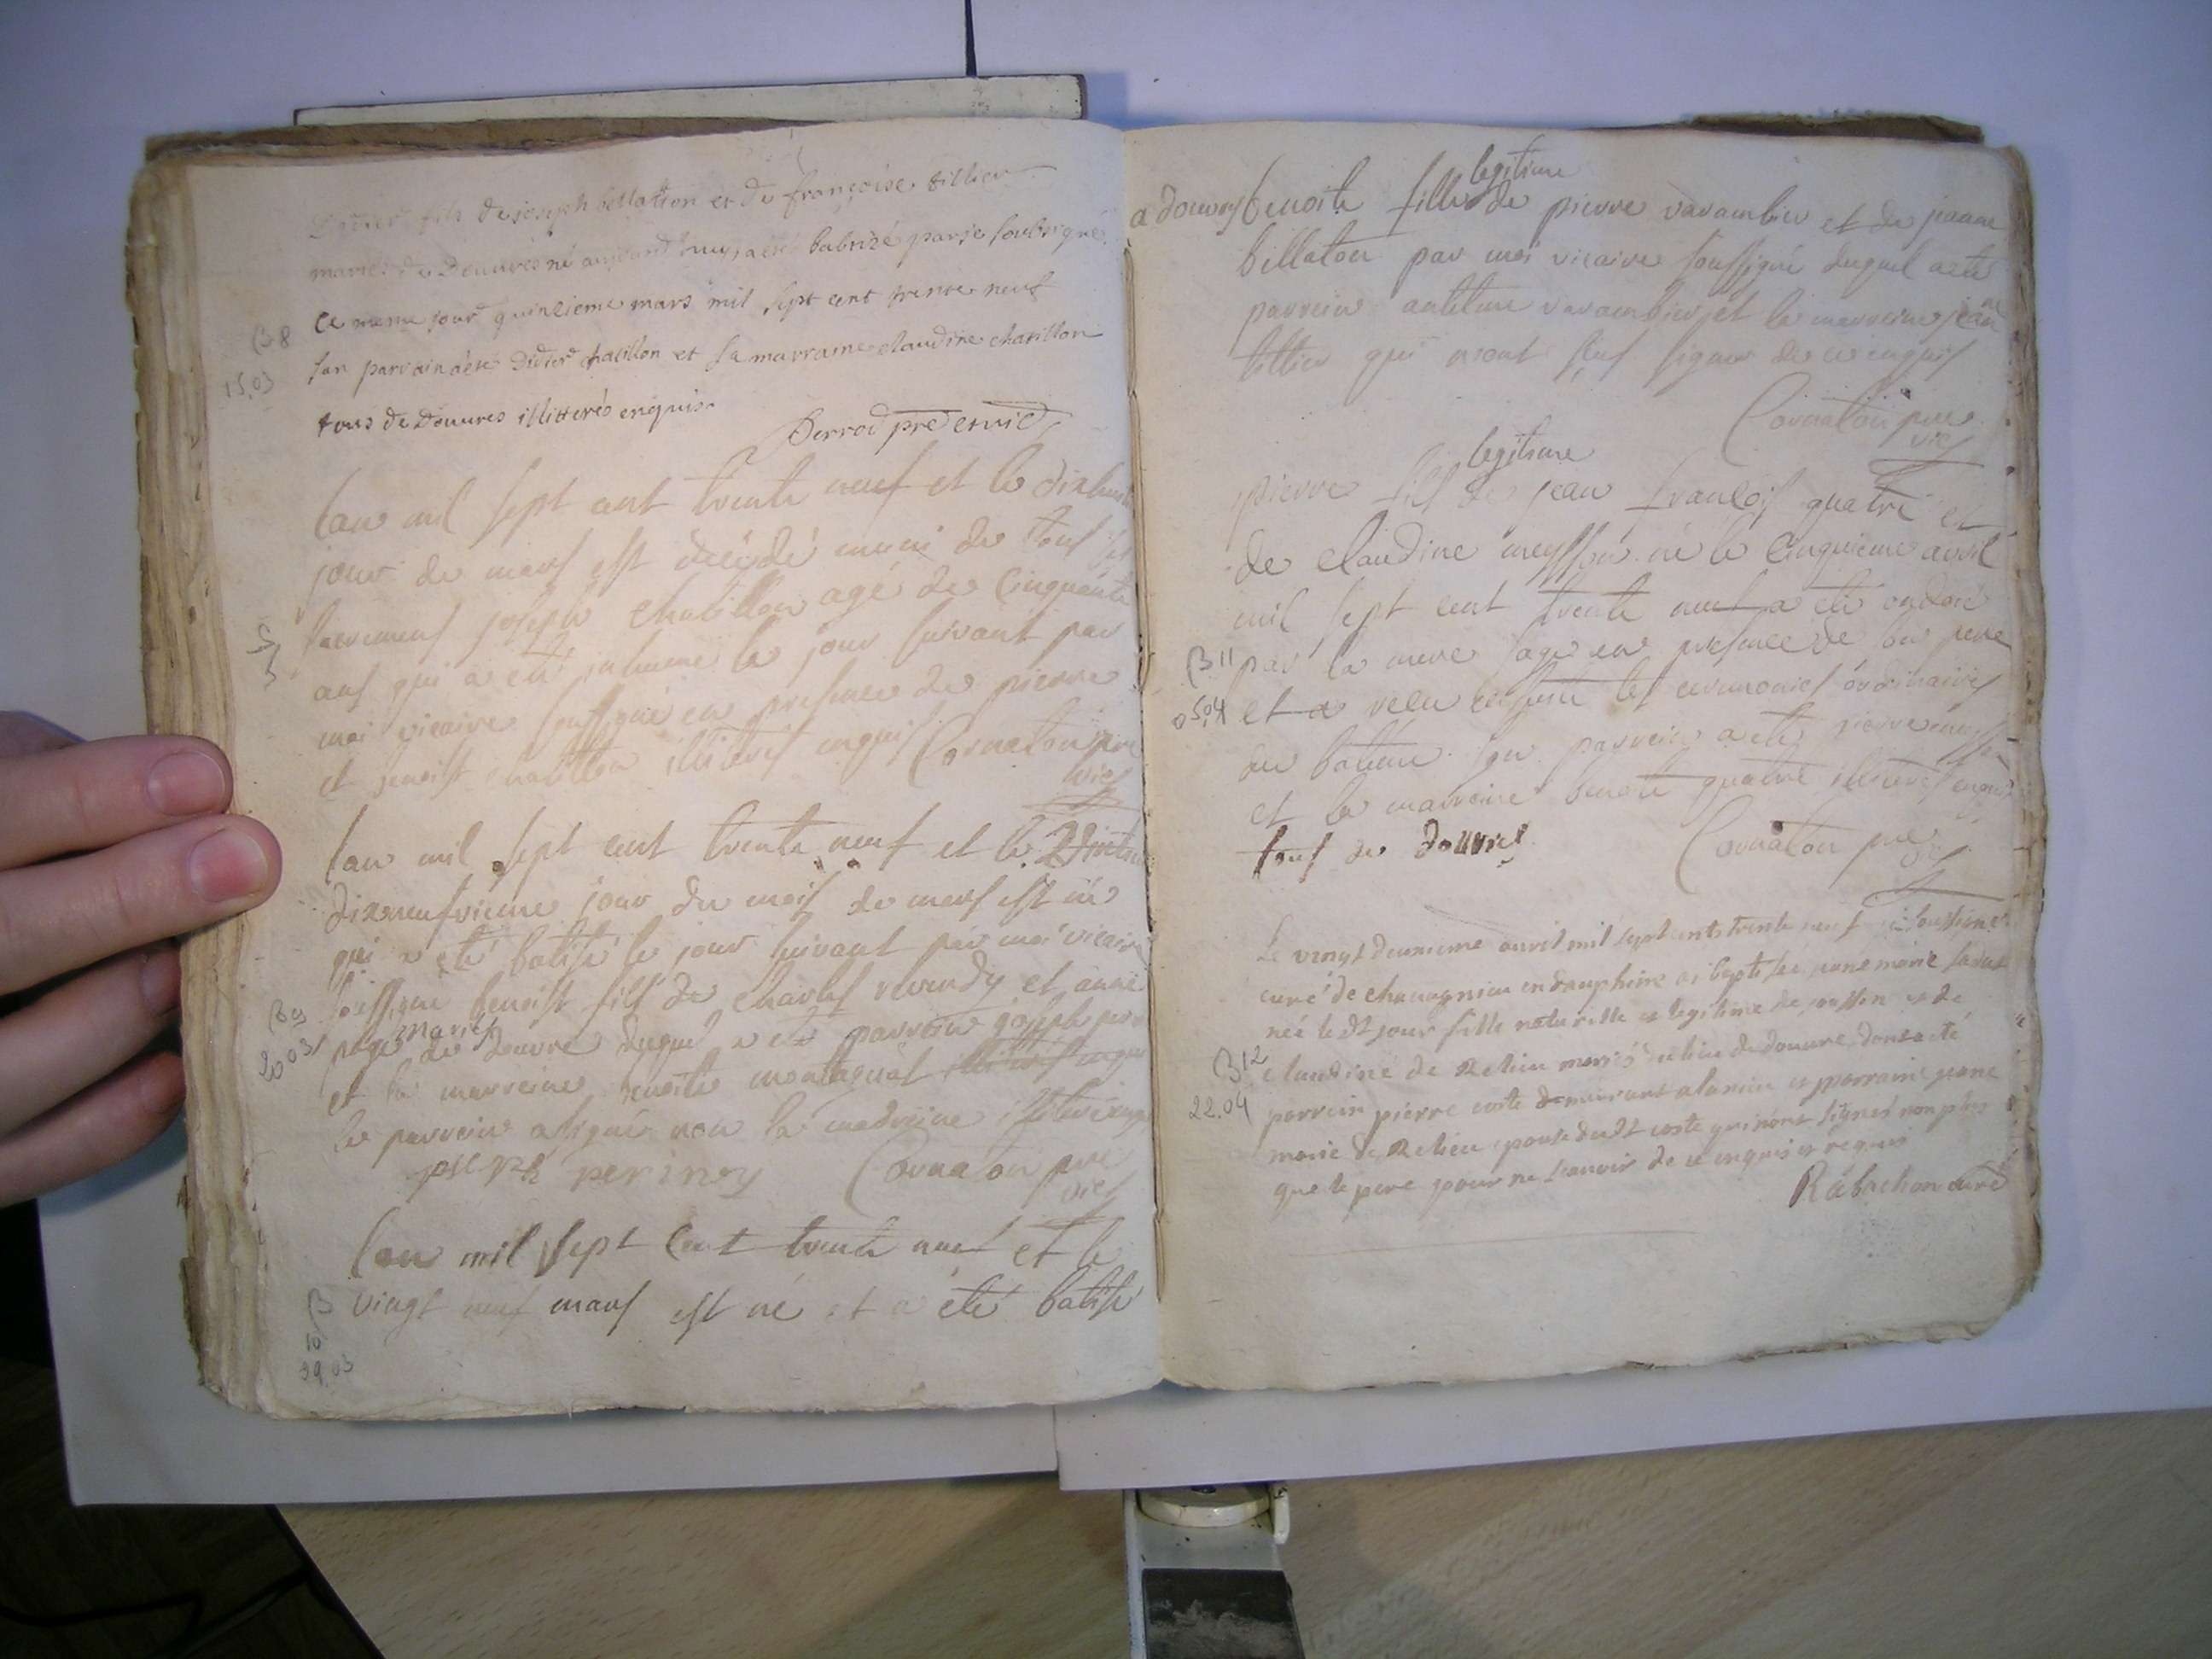 Didier fils de joseph bellatton et de françoise tillier
mariés de Douvres né aujourd'huy, a été batizé par je soubsigné
B 8
ce meme jour quinzieme mars mil sept cent trente neuf
15.03
son parrain a été Didier chatillon et sa marraine claudine chatillon
tous de Douvres illitterés enquis.
Perrod pre et vic
lan mil sept cent trente neuf et le dixhuit
jour de mars est décédé muni de tous les
sacremens joseph chatillon agé de Cinquante
S 3
ans qui a eté inhumé le jour suivant par
moi vicaire soussigné en presence de pierre
et benoist chatillon illiterés enquis Cornaton pre
vic
lan mil sept cent trente neuf et le
dixneufvieme jour du mois de mars est né
qui a eté batisé le jour suivant par moi vicaire
B 9
soussigné benoist fils de Charles et anne
20 03
mariés
de douvre duquel a eté parrein joseph
et la marreine benoite montagnat enquis
le parrein a signé non la marreine illiteré enquis
perinoy Cornaton pre
vic
lan mil sept cent trente neuf et le
B
vingt neuf mars est né et a été batisé
10
29.03
legitime
a douvres benoite fille de pierre varambier et de jeanne
billaton par moi vicaire soussigné duquel a eté
parrein antelme varambier et la marreine jeanne
tillier qui n'ont sceu signer de ce enquis
Cornaton pre
vic
legitime
pierre fils de jean francois quatre et
de Claudine né le Cinquieme avril
mil sept cent trente neuf a eté ondoié
B 11
par la mere sage en presence de son pere
05.04
et a recu ensuite les ceremonies ordinaires
du bateme son parrein a eté pierre
et la marreine benoite quatre illiterés enquis
tous de Douvres Cornaton pre
vic
Le vingt deuxieme avril mil sept cents trente neuf je soussigné
curé de chavagnieu en dauphiné ai baptisée jeane marie
née le dt jour fille naturelle et legitime de et de
B 12
claudine de Relieu mariés du lieu de douvre dont a été
22.04
parrein pierre coste demeurant a et marraine jeane
marie de Relieu epouse dudt coste qui n'ont signés non plus
que le pere pour ne scavoir de ce enquis et requis
Rabachon curé